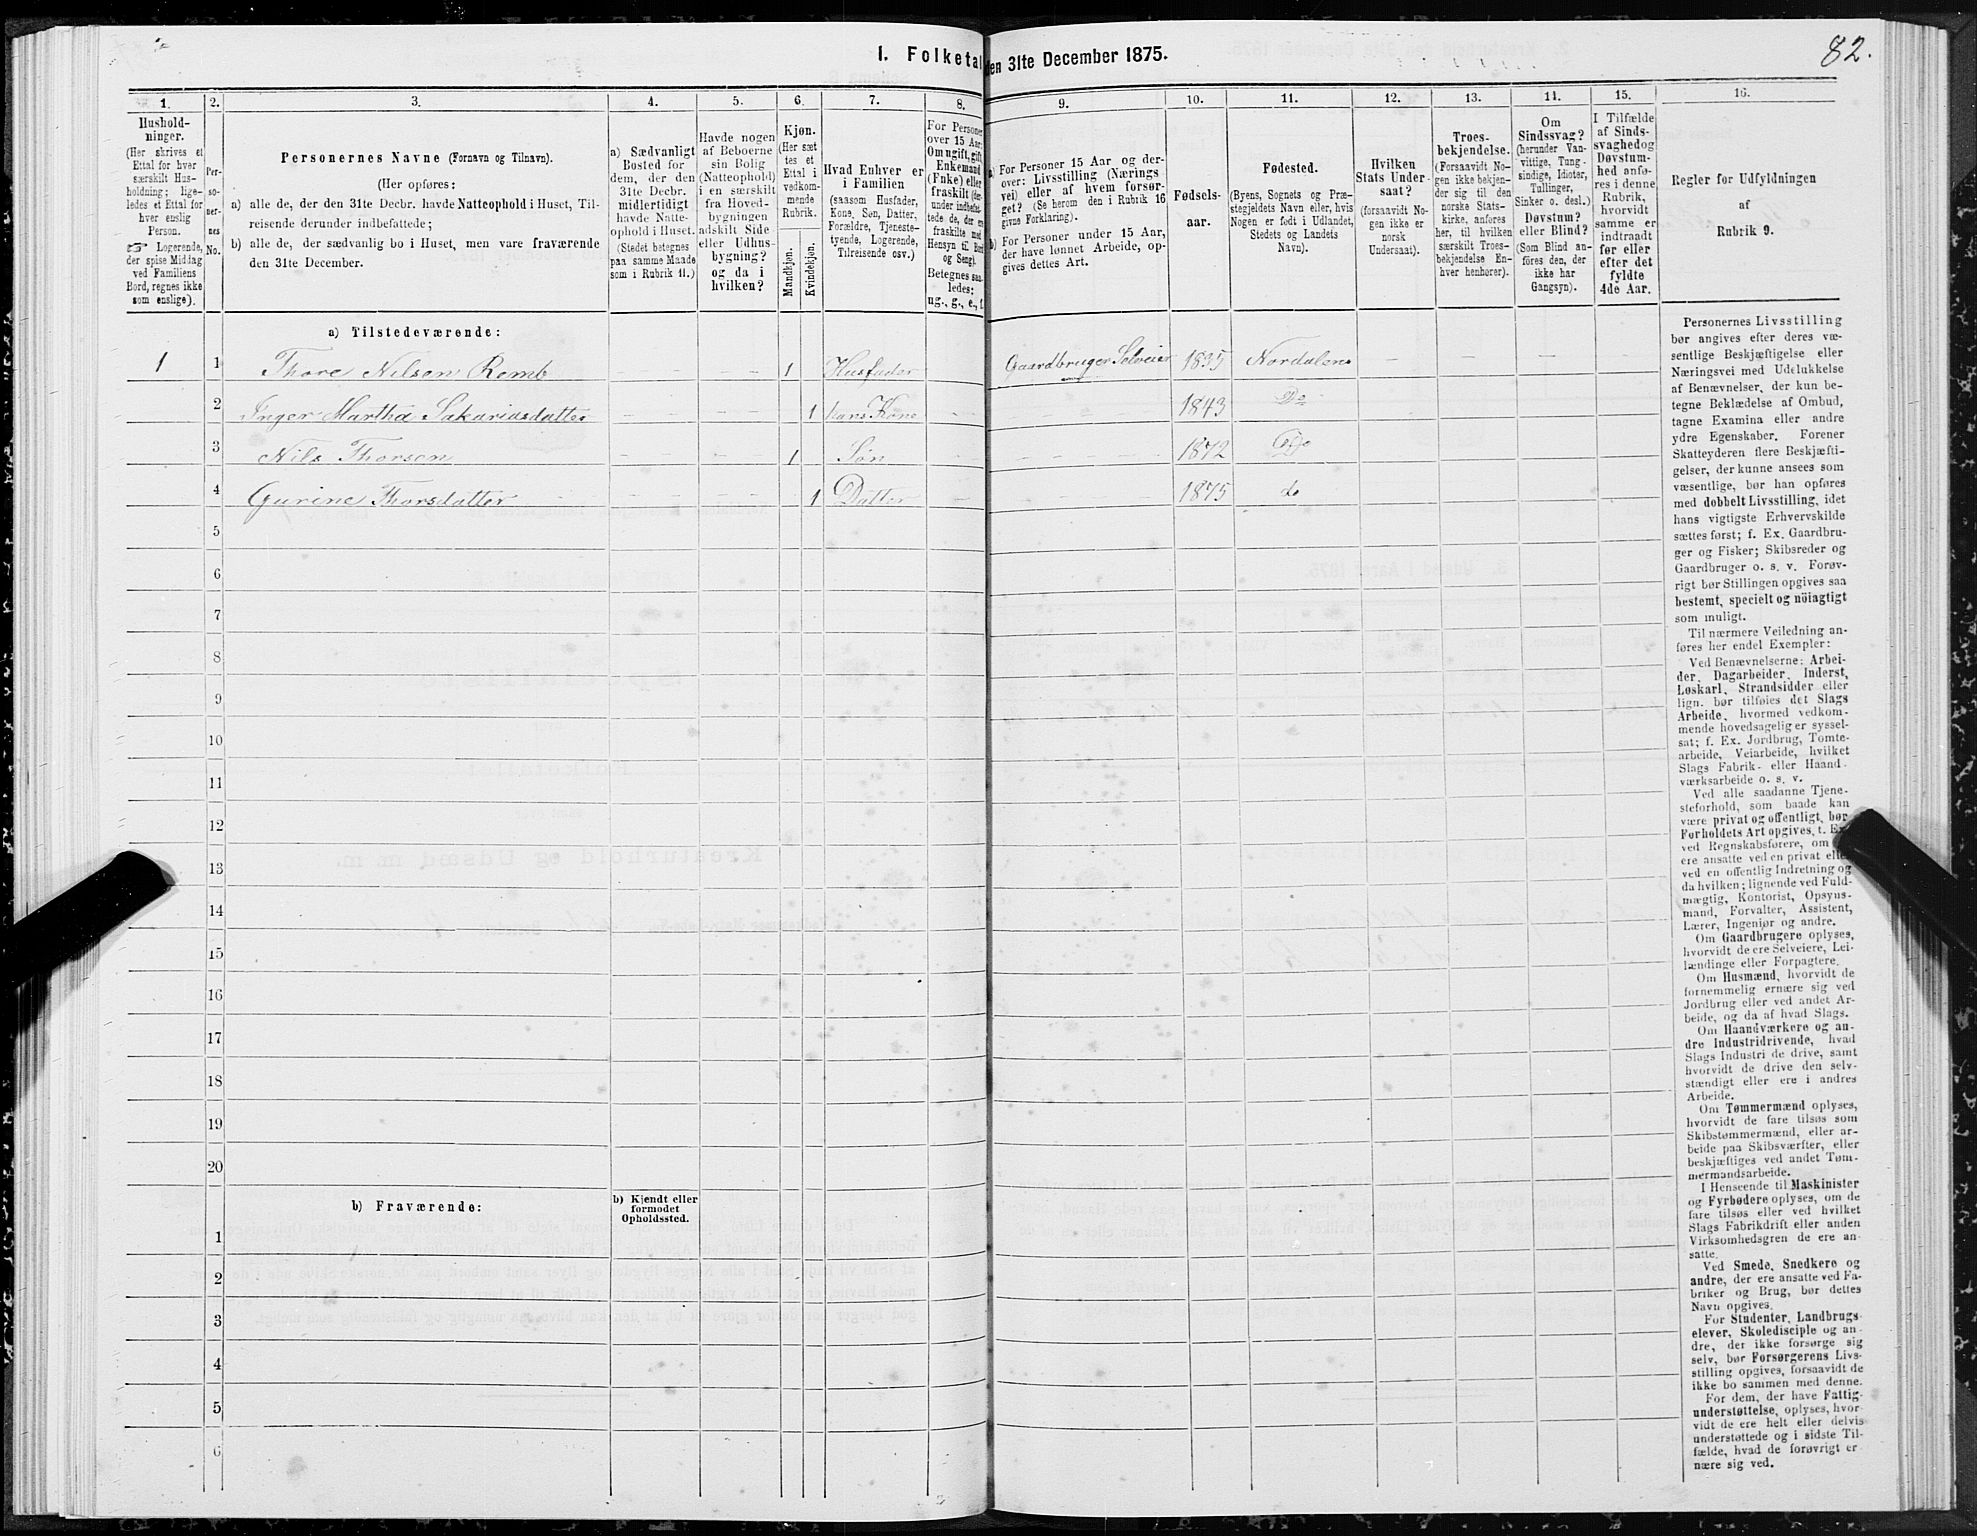 82.
1. Folketal den 31te December 1875.
1.
2.
3.
4.
5.
6.
7.
8.
9.
10.
11.
12.
13.
14.
15.
16.
Hushold-
ninger.
(Her skrives et
Ettal for hver
særskilt Hus-
holdning; lige-
ledes et Ettal for
hver enslig
Person.
☞ Logerende,
der spise Middag
ved Familiens
Bord, regnes ikke
som enslige).
Per-
so-
ner-
nes
No.
Personernes Navne (Fornavn og Tilnavn).
(Her opføres:
a) alle de, der den 31te Decbr. havde Natteophold i Huset, Til-
reisende derunder indbefattede;
b) alle de, der sædvanlig bo i Huset, men vare fraværende
den 31te December.
a) Sædvanligt
Bosted for
dem, der den
31te Decbr.
midlertidigt
havde Natte-
ophold i Huset.
(Stedet betegnes
paa samme Maade
som i Rubrik 11.)
Havde nogen
af Beboerne
sin Bolig
(Natteophold)
i en særskilt
fra Hoved-
bygningen
adskilt Side-
eller Udhus-
bygning?
og da i
hvilken?
Kjøn.
(Her sæt
tes et
Ettal i
vedkom-
mende
Rubrik.
Mandkjøn.
Kvindekjøn.
Hvad Enhver er
i Familien
(saasom Husfader,
Kone, Søn, Datter,
Forældre, Tjeneste-
tyende, Logerende,
Tilreisende osv.)
For Personer
over 15 Aar:
Om ugift, gift,
Enkemand
(Enke) eller
fraskilt (der-
under indbefat-
tede de, der ere
fraskilte med
Hensyn til Bord
og Seng).
Betegnes saa-
ledes:
ug., g., e., f.
a) For Personer 15 Aar og der-
over: Livsstilling (Nærings
vei) eller af hvem forsør-
get? (Se herom den i Rubrik 16
givne Forklaring).
b) For Personer under 15 Aar,
der have lønnet Arbeide, op-
gives dettes Art.
Fødsels-
aar.
Fødested.
(Byens, Sognets og Præ-
stegjeldets Navn eller, hvis
Nogen er født i Udlandet,
Stedets og Landets
Navn).
Hvilken
Stats Under-
saat?
(forsaavidt No-
gen ikke er
norsk
Undersaat).
Troes-
bekjendelse.
(Forsaavidt No-
gen ikke bekjen-
der sig til den
norske Stats-
kirke, anføres
her, til hvilken
særskilt Troes-
bekjendelse En-
hver henhører).
Om
Sindssvag?
(herunder Van-
vittige, Tung-
sindige, Idioter,
Tullinger,
Sinker o. desl.)
Døvstum?
eller Blind?
(Som Blind an-
føres den, der
ikke har
Gangsyn).
I Tilfælde
af Sinds-
svaghed og
Døvstum-
hed anfø-
res i denne
Rubrik,
hvorvidt
samme er
indtraadt
før eller
efter det
fyldte
4de Aar.
Regler for Udfyldningen
af
Rubrik 9.
a) Tilstedeværende:
1 1 Thore Nilsen Remb – – 1 Husfader Gaardbruger Selveier 1835 Nordalen – – –
2 Inger Martha Sakariasdatter – – 1 hans Kone – 1843 Do
3 Nils Thorsen – – 1 Søn – – 1872 Do
4 Gurine Thorsdatter – – 1 Datter – 1875 do
5
6
7
8
9
10
11
12
13
14
15
16
17
18
19
20
b) Fraværende:
b) Kjendt eller
formodet
Opholdssted.
1
2
3
4
5
6
Personernes Livsstilling
bør angives efter deres væ-
sentlige Beskjæftigelse eller
Næringsvei med Udelukkelse
af Benævnelser, der kun be-
tegne Beklædelse af Ombud,
tagne Examina eller andre
ydre Egenskaber. Forener
Skatteyderen flere Beskjæfti-
gelser, der kunne ansees som
væsentlige, bør han opføres
med dobbelt Livsstilling, idet
hans vigtigste Erhvervskilde
sættes først; f. Ex. Gaardbru-
ger og Fisker; Skibsreder og
Gaardbruger o. s. v. Forøv-
rigt bør Stillingen opgives saa
bestemt, specielt og nöiagtigt
som muligt.
Til nærmere Veiledning an-
føres her endel Exempler:
Ved Benævnelserne: Arbei-
der, Dagarbeider, Inderst,
Løskarl, Strandsidder eller
lign. bør tilføies det Slags
Arbeide, hvormed vedkom-
mende hovedsagelig er syssel-
sat; f. Ex. Jordbrug, Tomte-
arbeide, Veiarbeide, hvilket
Slags Fabrik- eller Haand-
værksarbeide o. s. v.
Ved alle saadanne Tjene-
steforhold, som baade kan
være privat og offentligt, bør
Forholdets Art opgives, t. Ex.
ved Regnskabsførere, om de
ere ansatte ved en privat eller
ved en offentlig Indretning og
da hvilken; lignende ved Fuld-
mægtig, Kontorist, Opsyns-
mand, Forvalter, Assistent,
Lærer, Ingeniør og andre.
Om Gaardbrugere oplyses,
hvorvidt de ere Selveiere, Lei-
lændinge eller Forpagtere.
Om Husmænd, hvorvidt de
fornemmelig ernære sig ved
Jordbrug eller ved andet Ar-
beide, og da af hvad Slags.
Om Haandværkere og an-
dre Industridrivende, hvad
Slags Industri de drive, samt
hvorvidt de drive den selv-
stændigt eller ere i andres
Arbeide.
Om Tømmermænd oplyses,
hvorvidt de fare tilsøs som
Skibstømmermænd, eller ar-
beide paa Skibsværfter, eller
beskjæftiges ved andet Tøm-
mermandsarbeide.
I Henseende til Maskinister
og Fyrbødere oplyses, om de
fare tilsøs eller ved hvilket
Slags Fabrikdrift eller anden
Virksomhedsgren de ere an-
satte.
Ved Smede, Snedkere og
andre, der ere ansatte ved Fa-
briker og Brug, bør dettes
Navn opgives.
For Studenter, Landbrugs-
elever, Skoledisciple og an-
dre, der ikke forsørge sig
selv, bør Forsørgerens Livs-
stilling opgives, forsaavidt de
ikke bo sammen med denne.
For dem, der have Fattig-
understøttelse, oplyses, hvor-
vidt de ere helt eller delvis
understøttede og i sidste Til-
fælde, hvad de forøvrigt er-
nære sig ved.